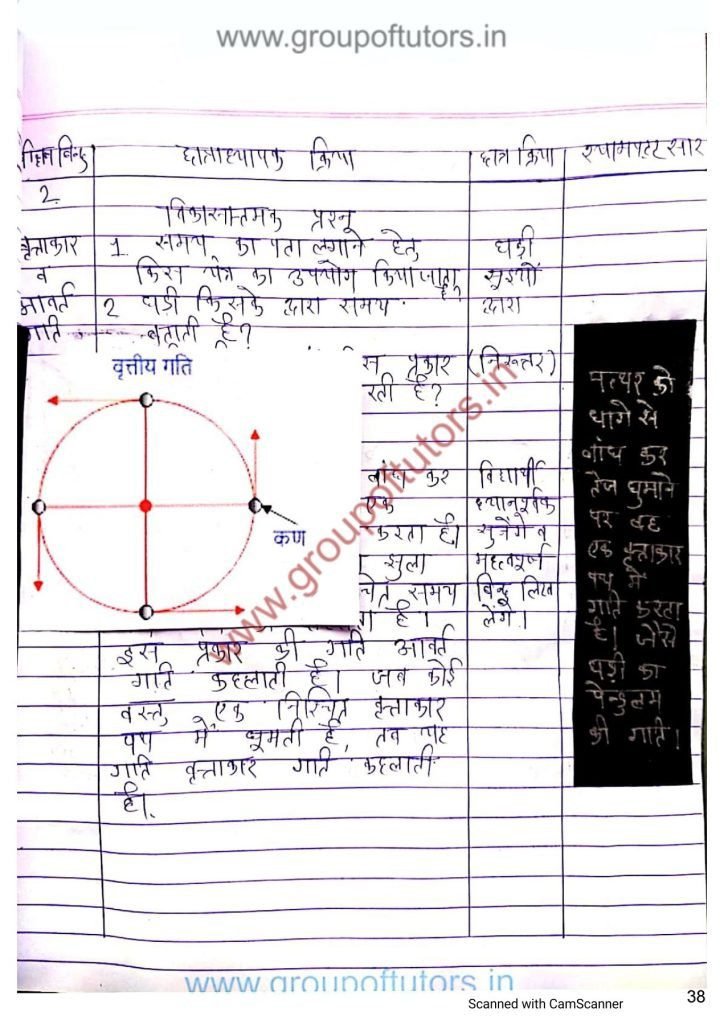 www.groupoftutors.in
छात्राध्यापक क्रिया
छात्र क्रिया
श्यामपट्ट सार
2.
वृत्ताकार
व
आवर्त
गति
विकासात्मक प्रश्न
1. समय का पता लगाने हेतु
किस यंत्र का उपयोग किया जाता है
2 घड़ी किसके द्वारा समय
बताती है?
प्रकार
रती है?
बांध कर
एक
करता है।
झुला
समय
है।
इस प्रकार की गति आवर्त
गति कहलाती है। जब कोई
वस्तु एक निश्चित वृत्ताकार
पथ में घूमती है, तब यह
गति वृत्ताकार गति कहलाती
है।
घड़ी
सुइयों
द्वारा
(निरुत्तर)
विद्यार्थी
ध्यानपूर्वक
सुनेंगे व
महत्वपूर्ण
बिन्दु लिख
लेंगे।
वृत्तीय गति
कण
पत्थर को
धागे से
बांध कर
तेज घुमाने
पर वह
एक वृत्ताकार
पथ में
गति करता
है। जैसे
घड़ी का
पेन्डुलम
की गति।
www.groupoftutors.in
www.groupoftutors.in
Scanned with CamScanner
38